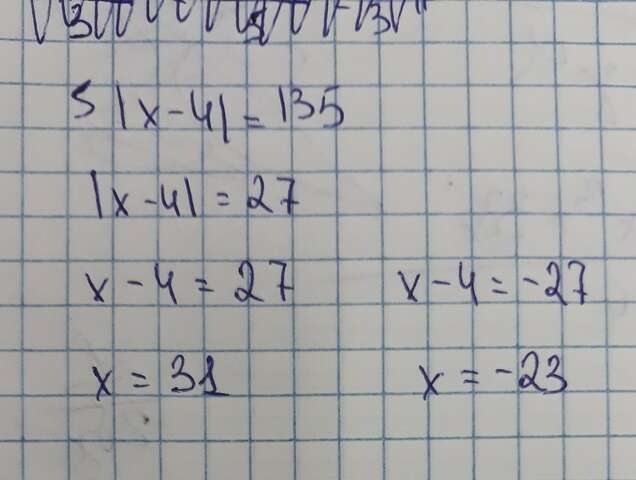 5 |x-4| = 135
|x-4| = 27
x-4 = 27 x-4 = -27
x = 31 x = -23